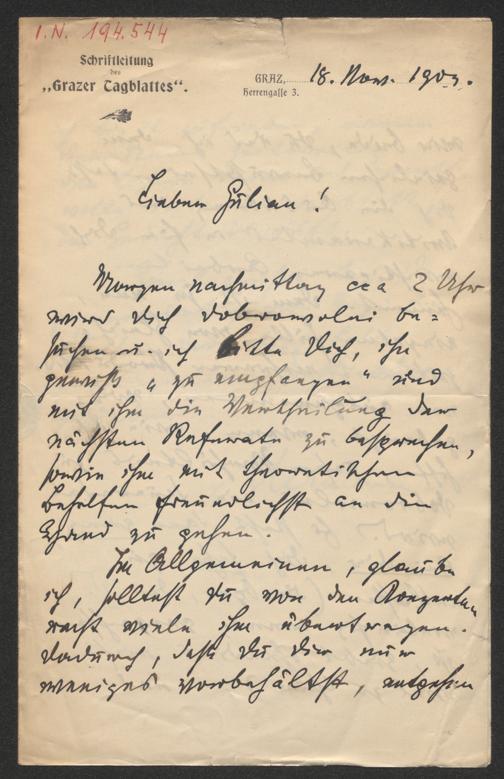 I.N. 194.544
Schriftleitung
des
„Grazer Tagblattes“.
GRAZ, 18. Nov. 1903.
Herrengasse 3.
Lieber Julian!
Morgen nachmittag cca 2 Uhr
wird Dich Dobrowolni be=
suchen u. ich bitte Dich, ihn
gewiß „zu empfangen“ und
mit ihm die Vertheilung der
nächsten Referate zu besprechen,
sowie ihm mit theoretischen
Behelfen freundlichst an die
Hand zu gehen.
Im Allgemeinen, glaube
ich, solltest Du von den Konzerten
recht viele ihm übertragen.
Dadurch, daß Du Dir nur
weniges vorbehältst, entgehen